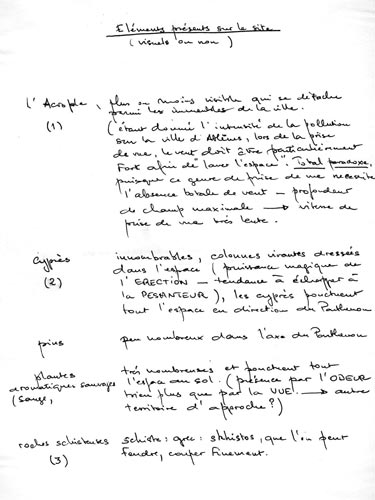 Eléments présents sur le site
(visuels ou non)
l'Acropole, plus ou moins visible qui se détache
parmi les immeubles de la ville.
(1) (étant donné l'intensité de la pollution
sur la ville d'Athènes, lors de la prise
de vue, le vent doit être particulièrement
fort afin de laver l'espace". Total paradoxe,
puisque ce genre de prise de vue nécessite
l'absence totale de vent – profondeur
de champ maximale → vitesse de
prise de vue très lente.
cyprès innombrables, colonnes vivantes dressées
(2) dans l'espace (puissance magique de
l'ERECTION – tendance à échapper à
la PESANTEUR), les cyprès ponctuent
tout l'espace en direction du Parthenon
pins peu nombreux dans l'axe du Parthenon
plantes très nombreuses et ponctuent tout
aromatiques sauvages l'espace au sol. (présence par l'ODEUR
(Sauge, bien plus que par la VUE. → autre
territoire d'approche?)
roches schisteuses schiste: grec: skhistos, que l'on peut
(3) fendre, couper finement.